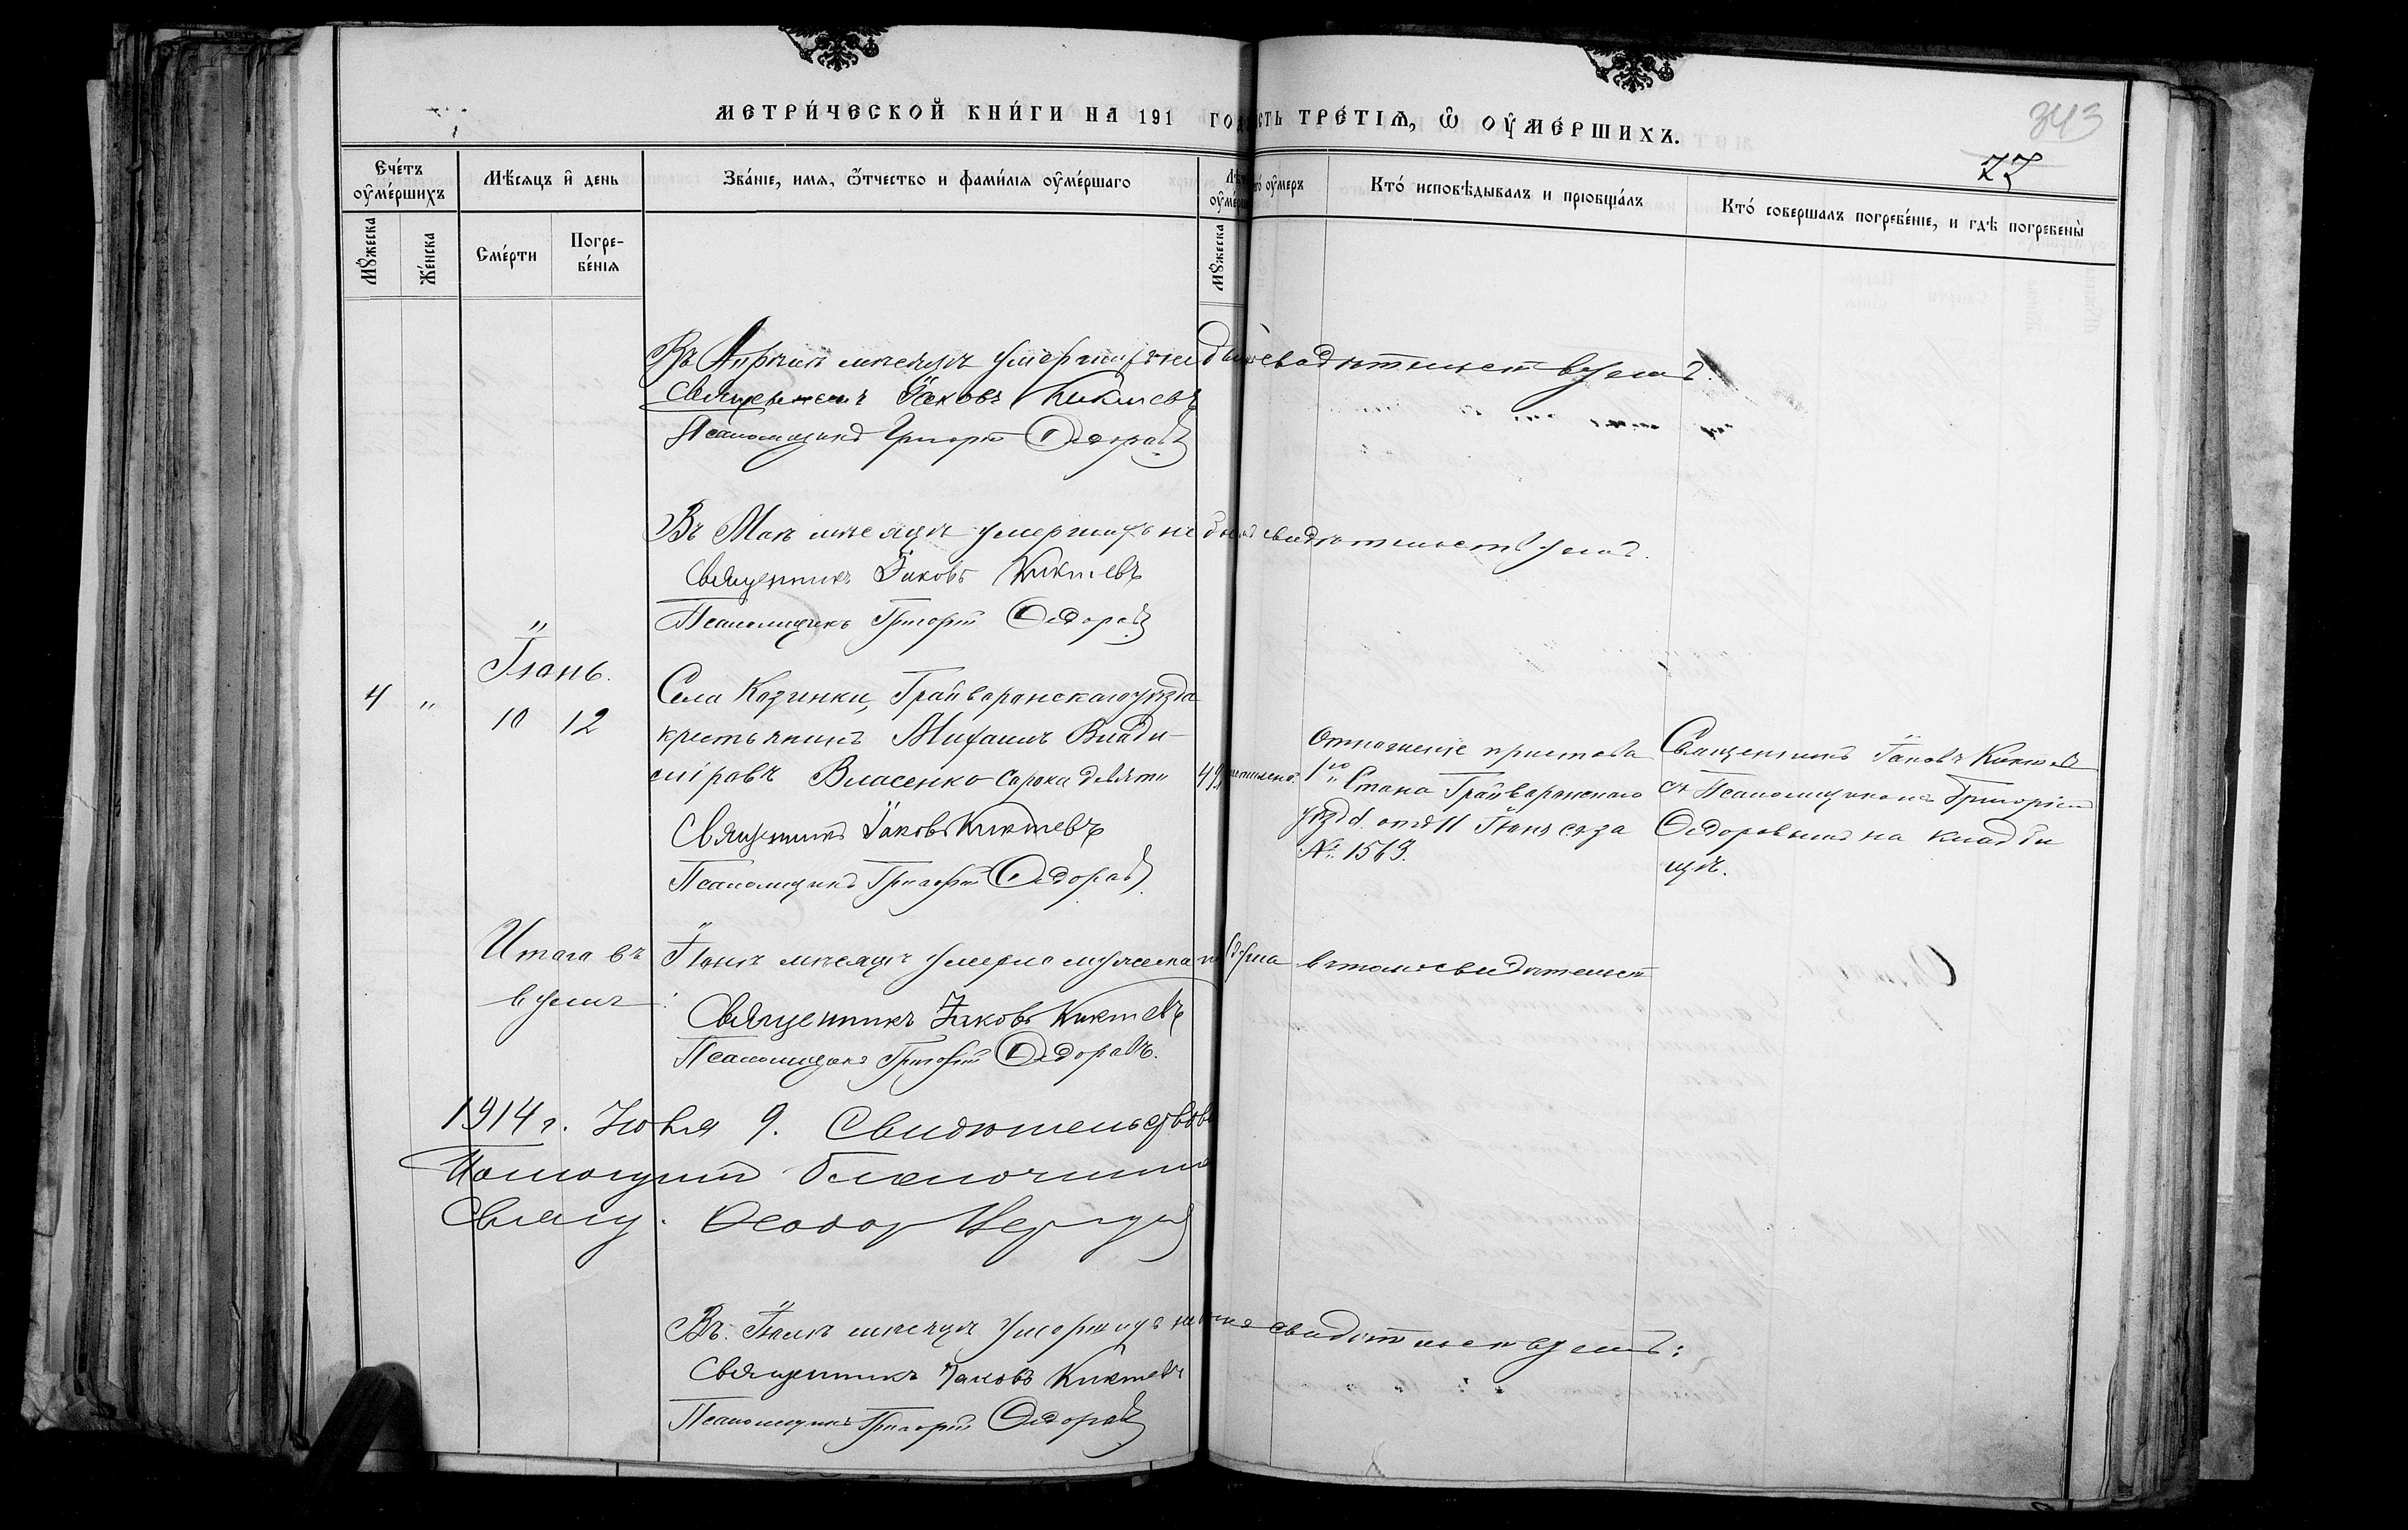 МЕТРИ́ЧЕСКОЙ КНИ́ГИ НА 191 ГОД
СТЬ ТРЕ́ТІѦ, Ѡ ОУМЕ́РШИХЪ.
343
77
Сче́тъ оуме́ршихъ
Мѣ́сяцъ и день
Зва́ніе, имя, ѻтчество и фами́лія оуме́ршаго
Лѣ
оуме́рш
го́ оумеръ
Кто́ исповѣ́дывалъ и пріобща́лъ
Кто́ соверша́лъ погребе́ніе, и гдѣ̀ погребены̀
Му́жеска
Же́нска
Сме́рти
Погре-
бе́нія
Му́жеска
Въ Апрѣлѣ мѣсяцѣ умершихъ не было свидѣтельствуемъ.
Священникъ Іаковъ Киктевъ
Псаломщикъ Григорій Ѳедоровъ
Въ Маѣ мѣсяцѣ умершихъ не было свидѣтельствуемъ.
Священникъ Іаковъ Киктевъ
Псаломщикъ Григорій Ѳедоровъ
Іюнь.
4 " 10 12
Села Козинки, Грайворонскаго уѣзда
крестьянинъ Михаилъ Влади-
міровъ Власенко сорока девяти
49
Священникъ Іаковъ Киктевъ
Псаломщикъ Григорій Ѳедоровъ
Отношеніе пристава
1го Стана Грайворонскаго
уѣзда отъ 11 Іюня за
№ 1563.
Священникъ Іаковъ Киктевъ
съ Псаломщикомъ Григоріемъ
Ѳедоровымъ на кладби
щѣ.
Итого въ Іюнѣ мѣсяцѣ умерло мужеска по душа въ томъ свидѣтельст
вуемъ:
Священникъ Іаковъ Киктевъ
Псаломщикъ Григорій Ѳедоровъ.
1914 г. Іюля 9. Свидѣтельствова
Помощникъ благочинна
Священ. Ѳеодоръ
Въ Іюлѣ мѣсяцѣ умершихъ не было свидѣтельствуемъ:
Священникъ Іаковъ Киктевъ
Псаломщикъ Григорій Ѳедоровъ